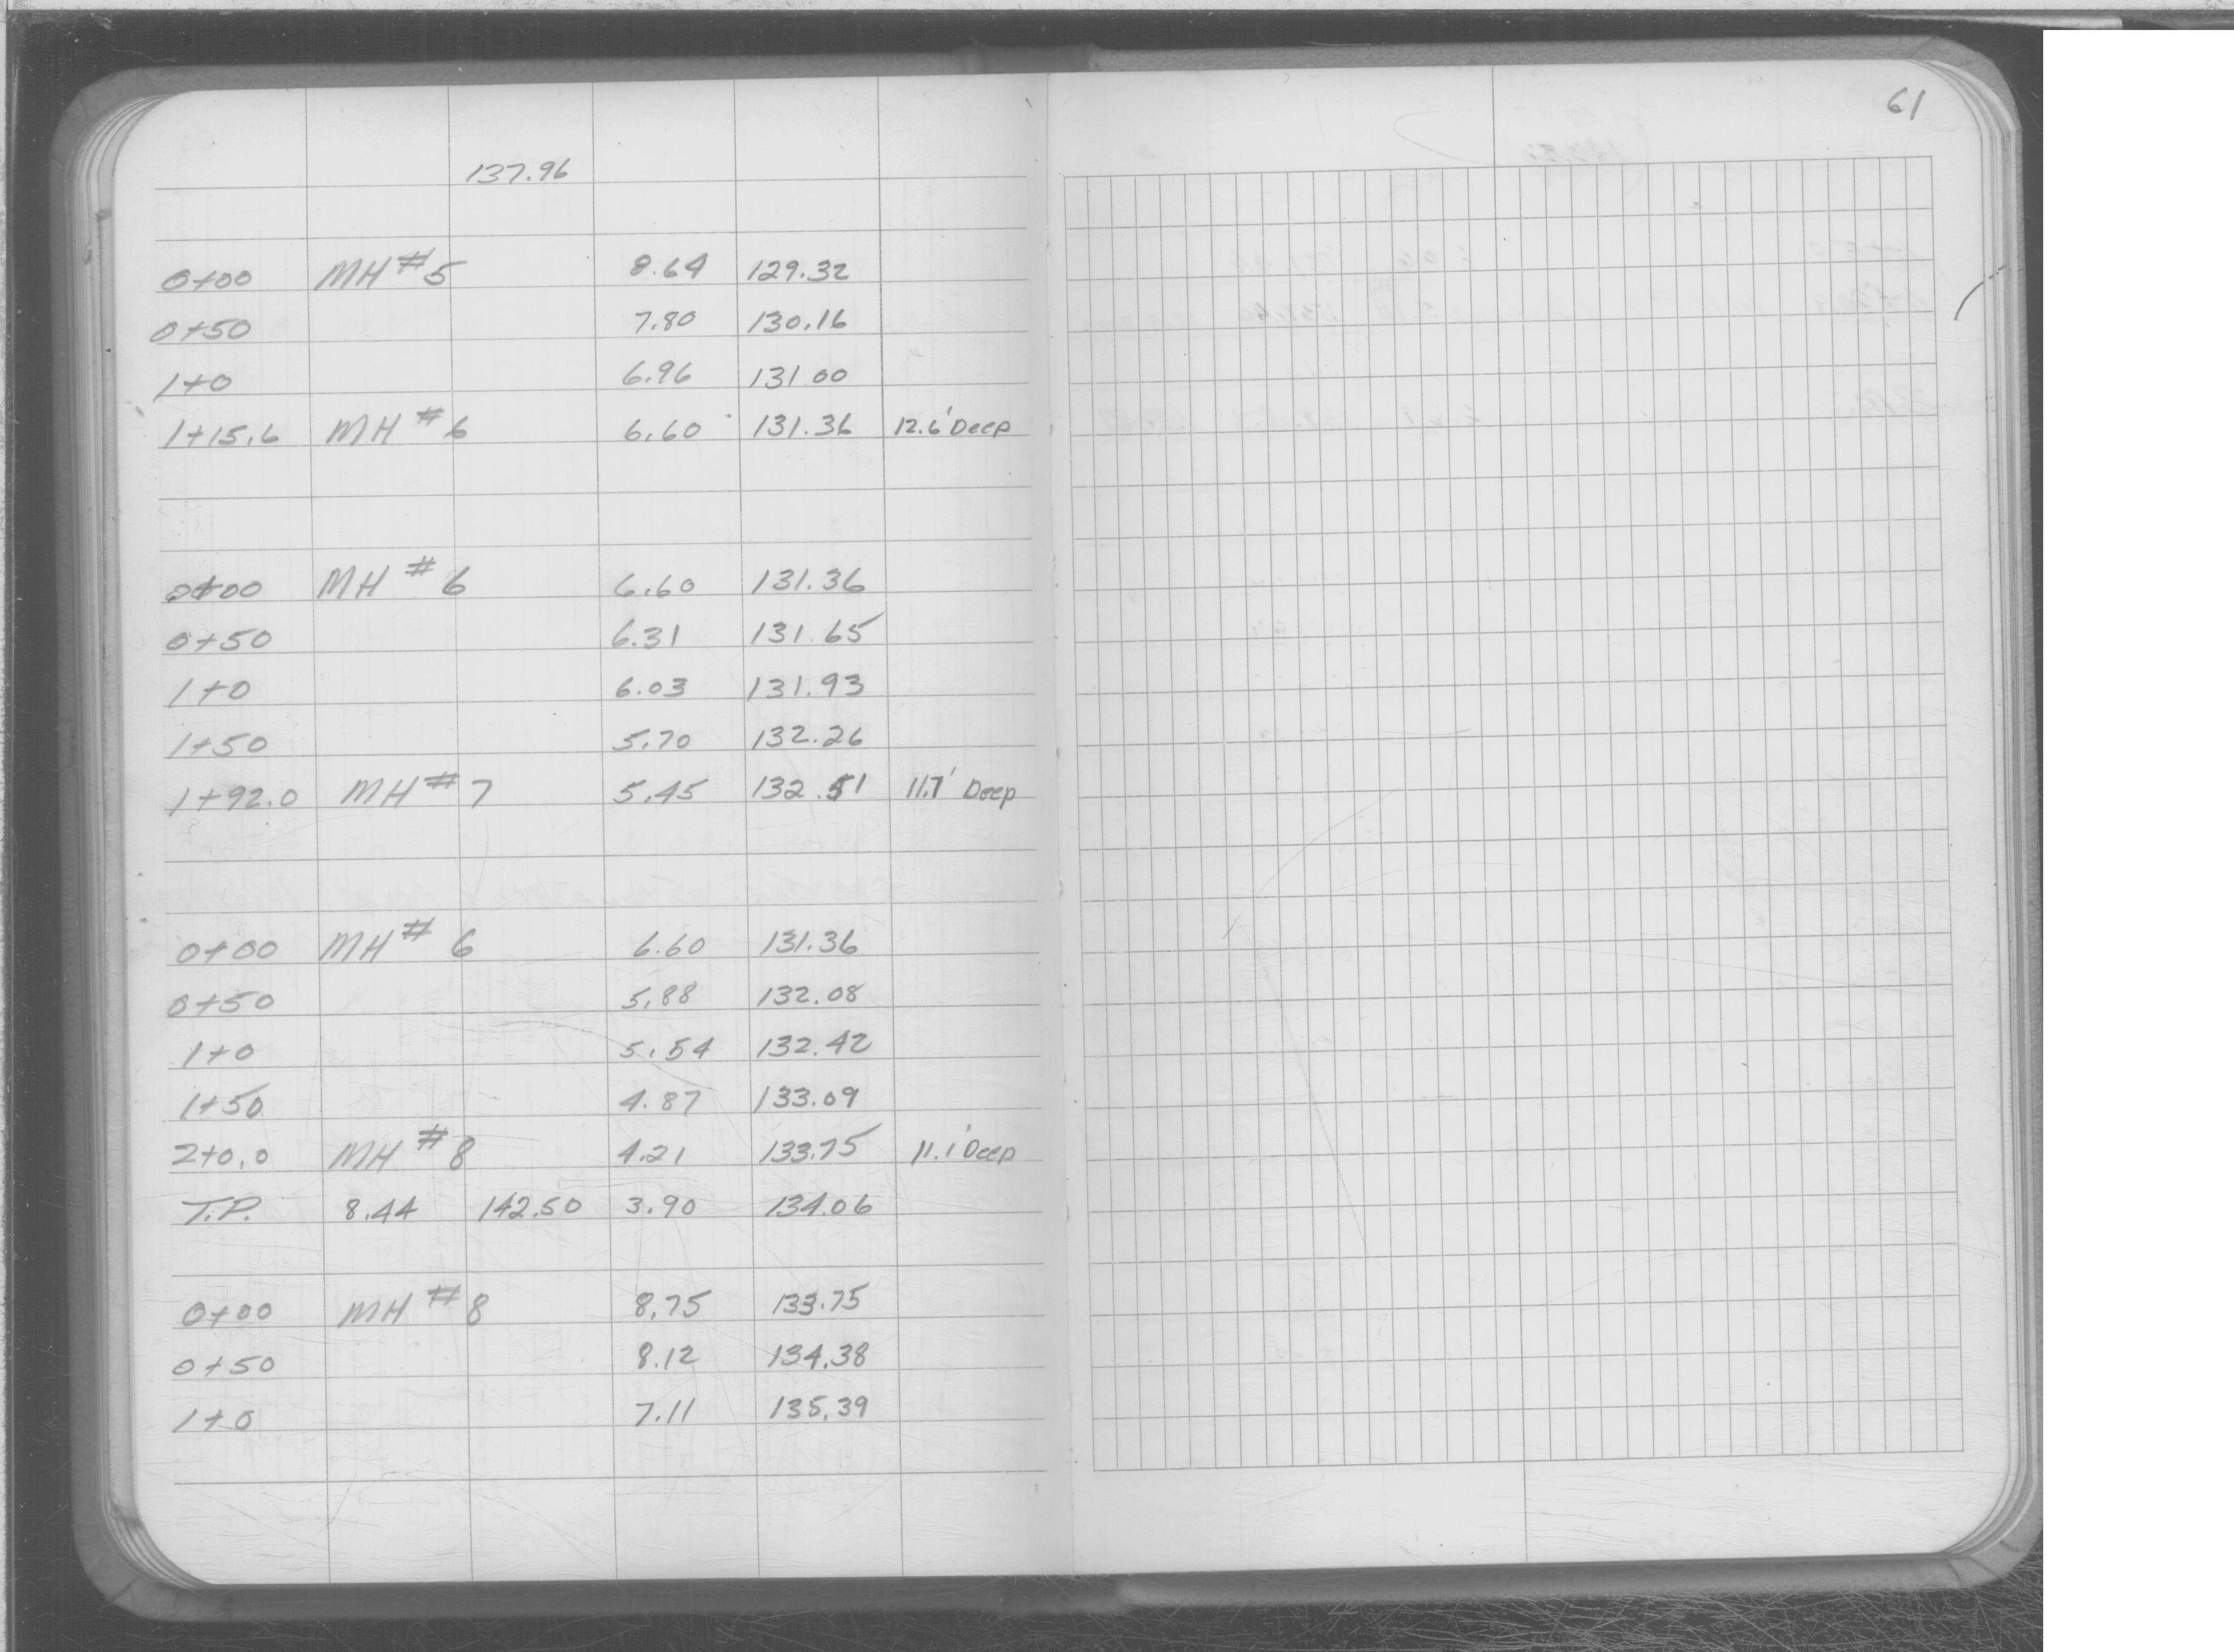 61
137.96
0+00 MH #5 8.64 129.32
0+50 7.80 130.16
1+0 6.96 131 00
1+15.6 MH #6 6.60 131.36 12.6' Deep
0+00 MH #6 6.60 131.36
0+50 6.31 131.65
1+0 6.03 131.93
1+50 5.70 132.26
1+92.0 MH #7 5.45 132.51 11.7' Deep
0+00 MH #6 6.60 131.36
0+50 5.88 132.08
1+0 5.54 132.42
1+50 4.87 133.09
2+0.0 MH #8 4.21 133.75 11.1' Deep
T.P. 8.44 142.50 3.90 134.06
0+00 MH #8 8.75 133.75
0+50 8.12 134.38
1+0 7.11 135.39